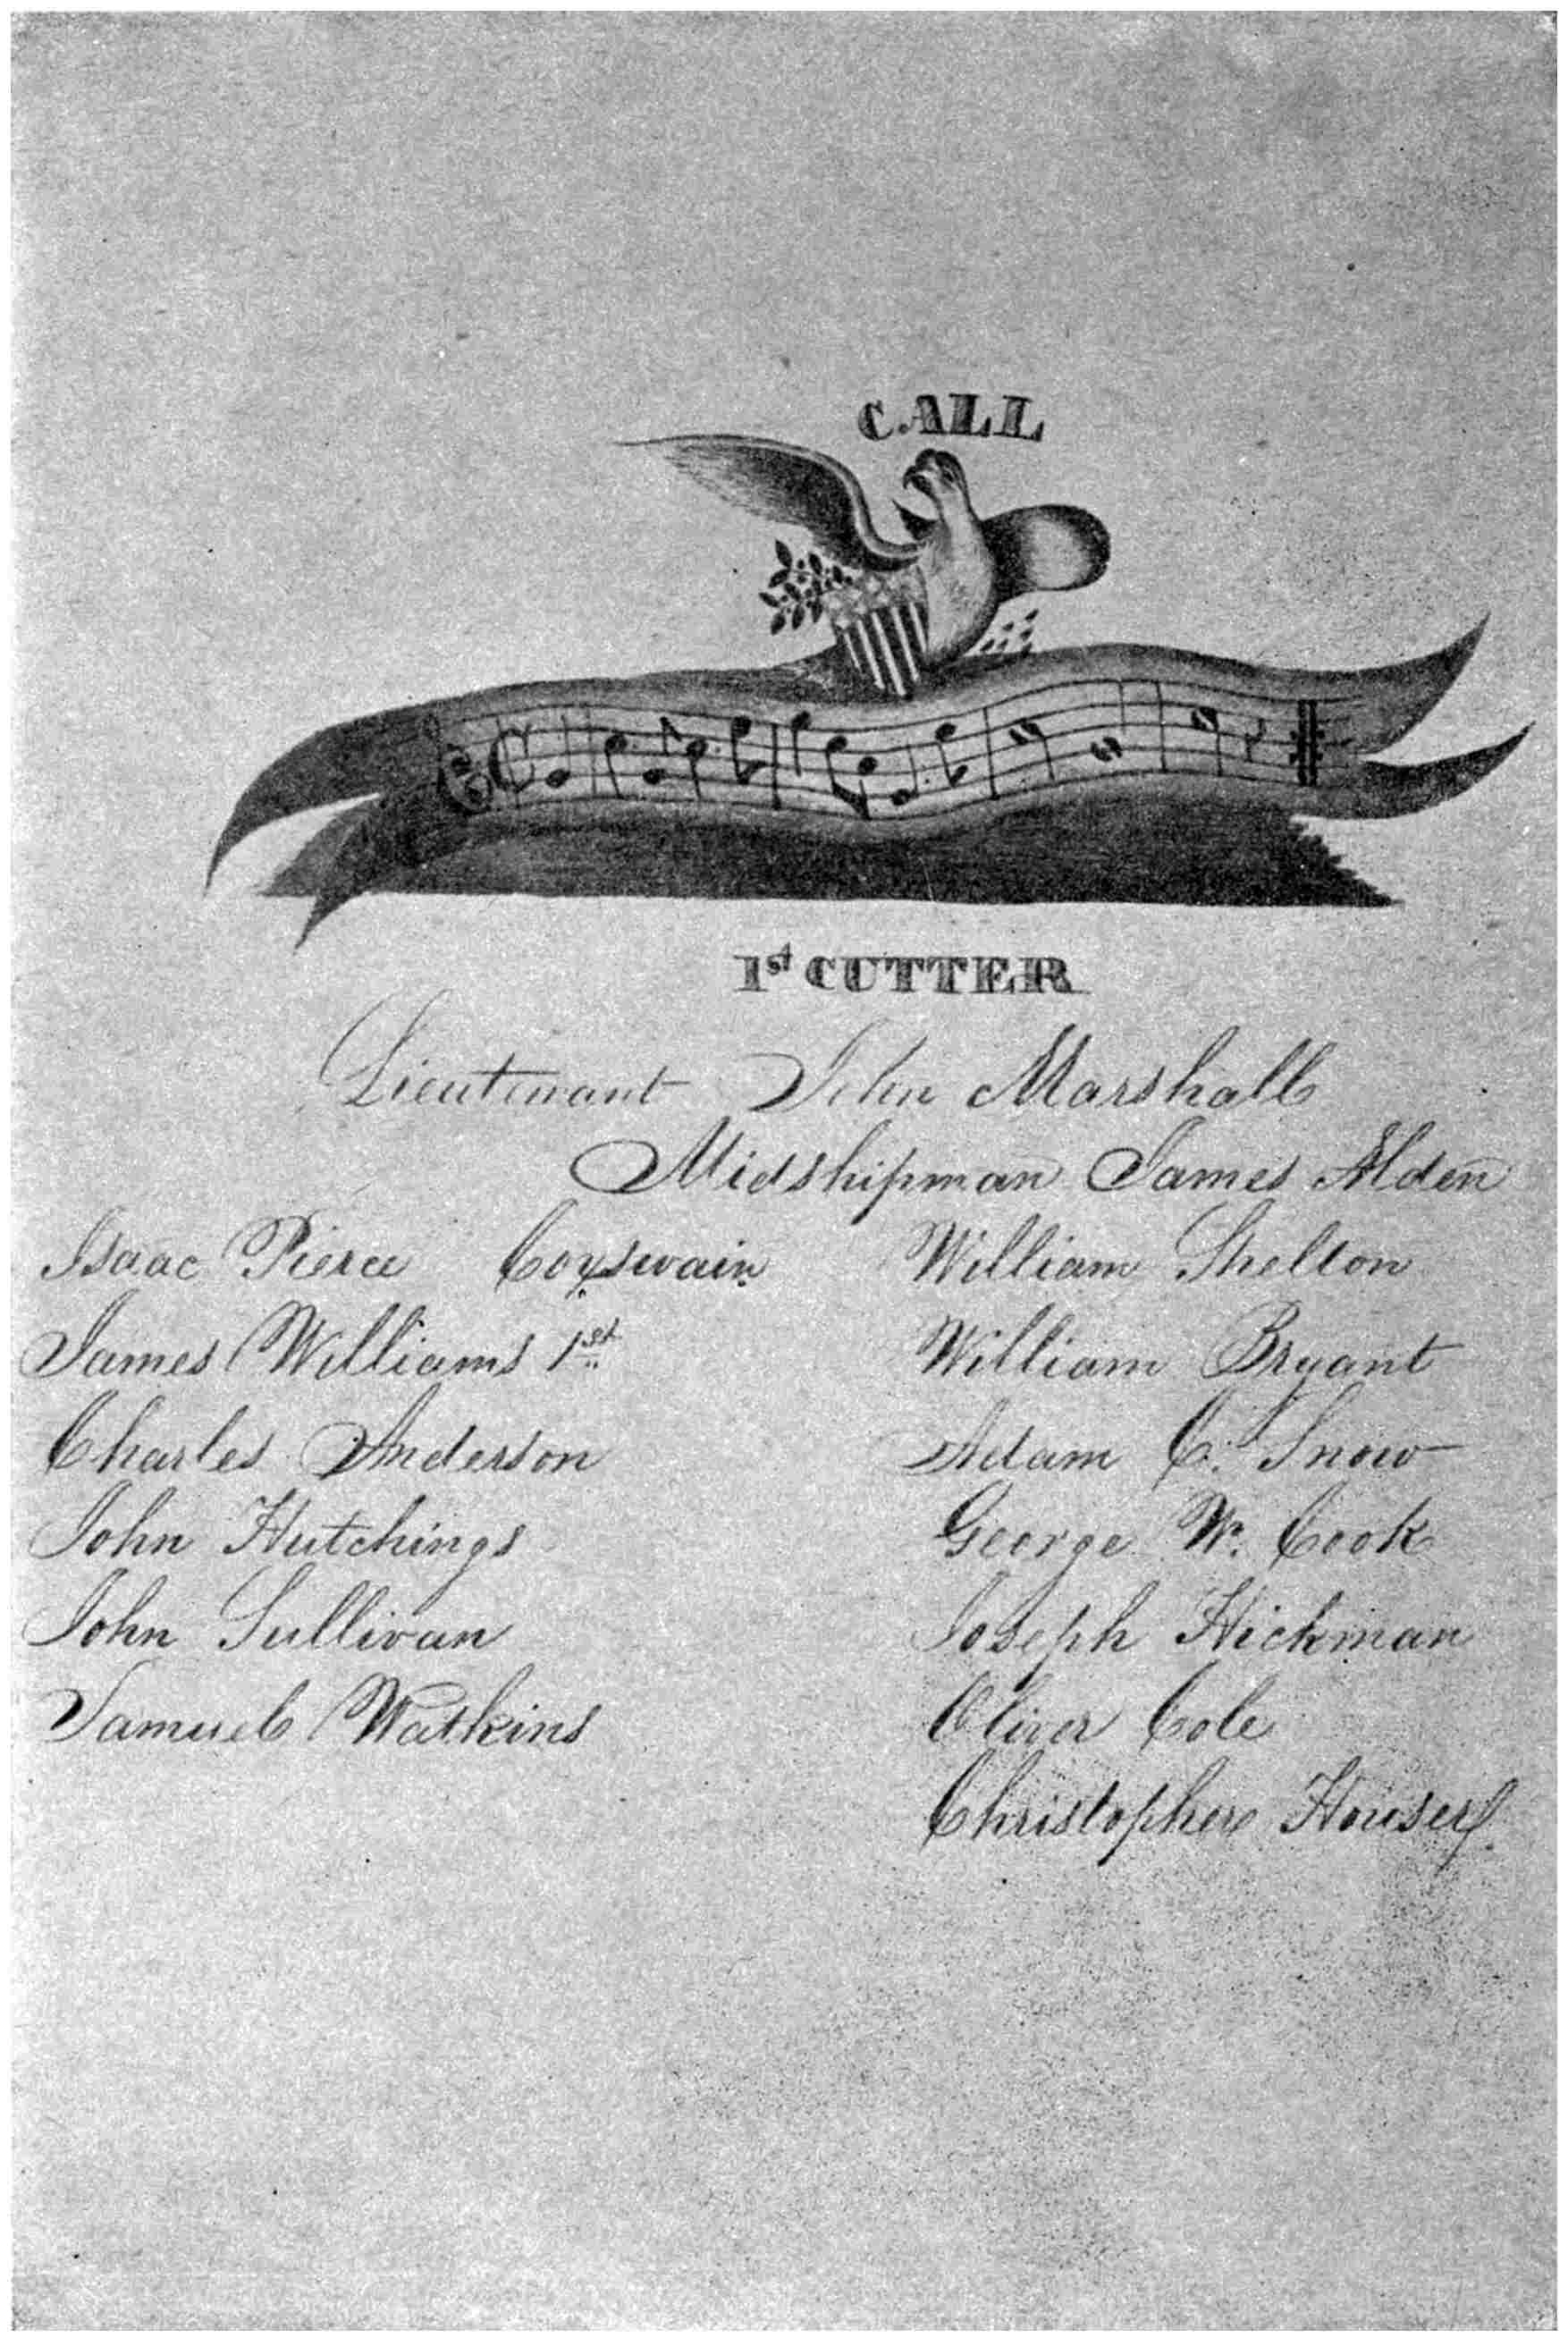 CALL
1st CUTTER
Lieutenant John Marshall
Midshipman James Alden
Isaac Pierce Coxswain
James Williams 1st
Charles Anderson
John Hutchings
John Sullivan
Samuel Watkins
William Shelton
William Bryant
Adam C. Snow
George W. Cook
Joseph Hickman
Oliver Cole
Christopher Houser